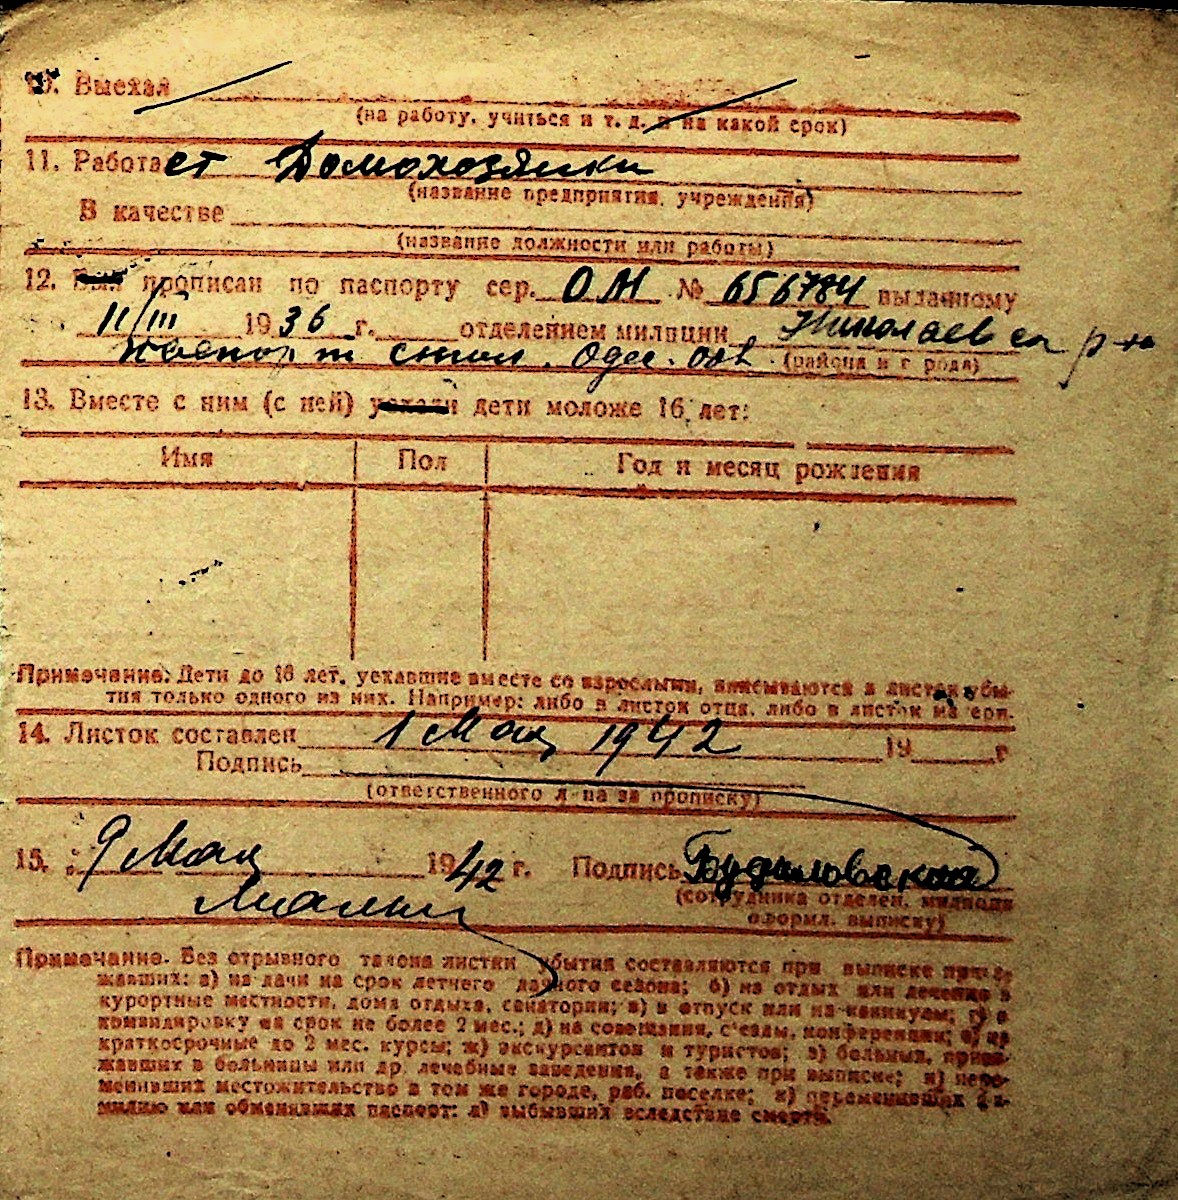 10. Выехал
(на работу, учиться и т. д. и на какой срок)
11. Работает Домохозяйки
(название предприятия, учреждения)
В качестве
(название должности или работы)
12. Был прописан по паспорту сер. ОМ № 656784 выданному
11/III 1936 г. отделением милиции Николаевск р-н
стол. Одес. обл. (района и города)
13. Вместе с ним (с ней) уехали дети моложе 16 лет:
Имя Пол Год и месяц рождения
Примечание: Дети до 16 лет, уехавшие вместе со взрослыми, вписываются в листок убы-
тия только одного из них. Например: либо в листок отца, либо в листок матери.
14. Листок составлен 1 Мая 1942 19 г
Подпись
(ответственного л-ца за прописку)
15. 9 Мая 1942 г. Подпись Будиловская
(сотрудника отделен. милиции
оформл. выписку)
Примечание. Без отрывного талона листки убытия составляются при выписке приез-
жавших: а) на дачи на срок летнего дачного сезона; б) на отдых или лечение в
курортные местности, дома отдыха, санатории; в) в отпуск или на каникулы; г) в
командировку на срок не более 2 мес.; д) на совещания, с'езды, конференции; е) на
краткосрочные до 2 мес. курсы; ж) экскурсантов и туристов; з) больных, приез-
жавших в больницы или др. лечебные заведения, а также при выписке; и) пере-
менивших местожительство в том же городе, раб. поселке; к) переменивших фа-
милию или обменявших паспорт: л) выбывших вследствие смерти.